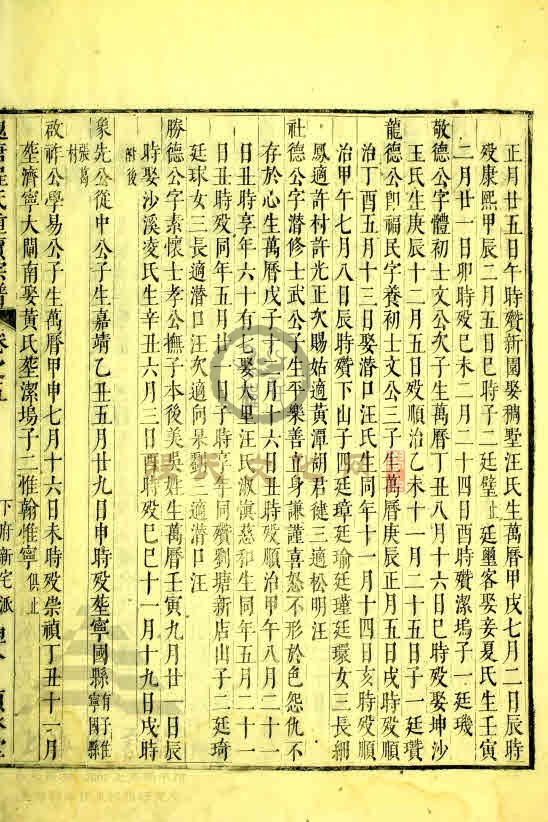 正月廿五日午時殯新閣娶稠墅汪氏生萬曆甲戌七月二日辰時
歿康熙甲辰二月五日巳時子二廷璧止廷璽客娶妾夏氏生壬寅
二月廿一日卯時歿己未二月二十四日酉時殯潔塢子一廷璣
敬德公字體初士文公次子生萬曆丁丑八月十六日巳時歿娶坤沙
王氏生庚辰十二月五日歿順治乙未十一月二十五日子一廷瓚
龍德公卽福民字養初士文公三子生萬曆庚辰正月五日戌時歿順
治丁酉五月十三日娶潛口汪氏生同年十一月十四日亥時歿順
治甲午七月八日辰時殯下山子四廷璋廷瑜廷瑾廷環女三長細
鳳適許村許光正次賜姑適黃潭胡君健三適松明汪
社德公字潛修士武公子生平樂善立身謙謹喜怒不形於色怨仇不
存於心生萬曆戊子十一月十六日丑時歿順治甲午八月二十一
日丑時享年六十有七娶大里汪氏淑滇慈和生同年五月二十一
日丑時歿同年五月廿二日子時享年同殯劉塘新店山子二廷琦
廷球女三長適潛口汪次適向杲劉三適潛口汪
勝德公字素懷士孝公撫子本後美吳姓生萬曆壬寅九月廿一日辰
時娶沙溪凌氏生辛丑六月三日酉時歿己巳十一月十九日戌時
附後
象先公從中公子生嘉靖乙丑五月廿九日申時歿塟寧國縣有子惟寧國縣
張葛村
啟祚公學易公子生萬曆甲申七月十六日未時歿崇禎丁丑十一月
塟濟寧大閘南娶黃氏塟潔塢子二惟翰惟寧俱止
氏道原宗譜 卷之五 下府新宅派